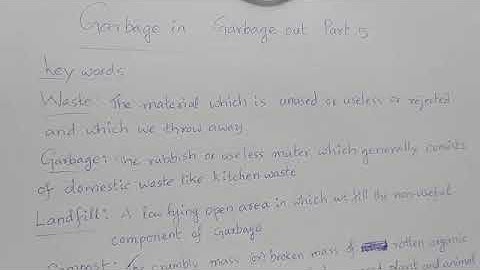 Garbage in Garbage out Part 5
key words
Waste: The material which is unused or useless or rejected
and which we throw away
Garbage: The rubbish or useless mater which generally consists
of domestic waste like kitchen waste
Landfill: A low lying open area in which we fill the non-useful
component of Garbage
Compost: The crumbly mass (or) broken mass of rotten organic
plant and animal